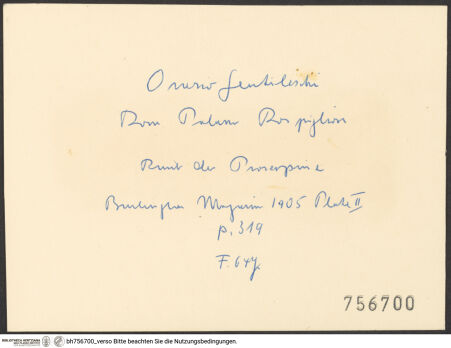 Orazio Gentileschi
Rom Palazzo Rospigliosi
Raub der Proserpina
Burlington Magazin 1905 Plate II
p. 319
756700
BIBLIOTHECA HERTZIANA
bh756700_verso Bitte beachten Sie die Nutzungsbedingungen.